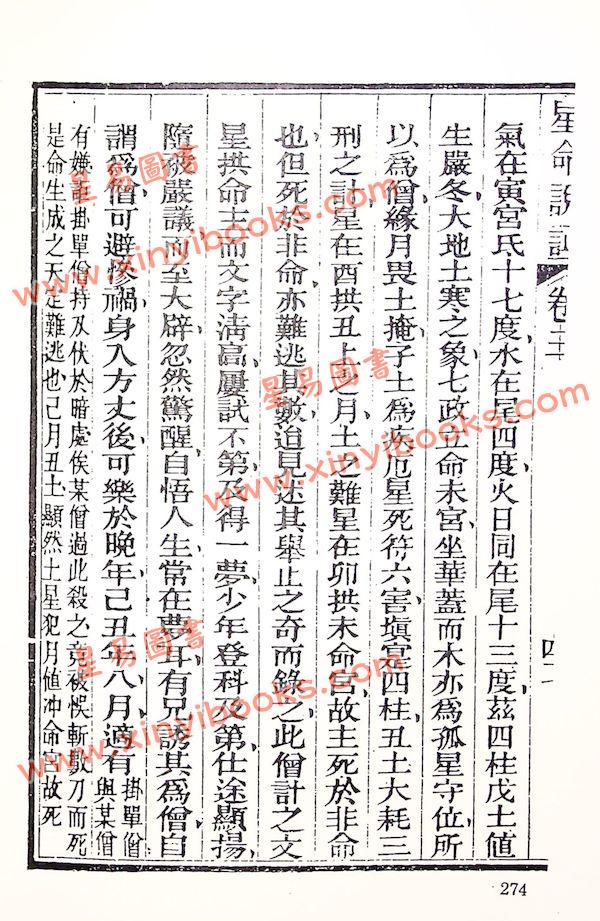 星命說証 卷二十 四二
氣在寅宮氐十七度水在尾四度火日同在尾十三度茲四柱戊土值
生嚴冬大地土寒之象七政立命未宮坐華蓋而木亦為孤星守位所
以為僧緣月畏土掩子土為疾厄星死符六害塡寔四柱丑土大耗三
刑之計星在酉拱丑上之月土之難星在卯拱未命宮故主死於非命
也但死於非命亦難逃其數迨見述其舉止之奇而錄之此僧計之文
星拱命主而文字淸高屢試不第及得一夢少年登科及第仕途顯揚
隨被嚴議而至大辟忽然驚醒自悟人生常在夢耳有兄誘其為僧自
謂為僧可避慘禍身入方丈後可樂於晚年己丑年八月適有掛單僧與某僧
有嫌詎掛單僧持刄伏於暗處俟某僧過此殺之竟被悞斬數刀而死
是命生成之天定難逃也己月丑土顯然土星犯月值冲命宮故死
274
星易圖書
www.xinyibooks.com
星易圖書
www.xinyibooks.com
星易圖書
www.xinyibooks.com